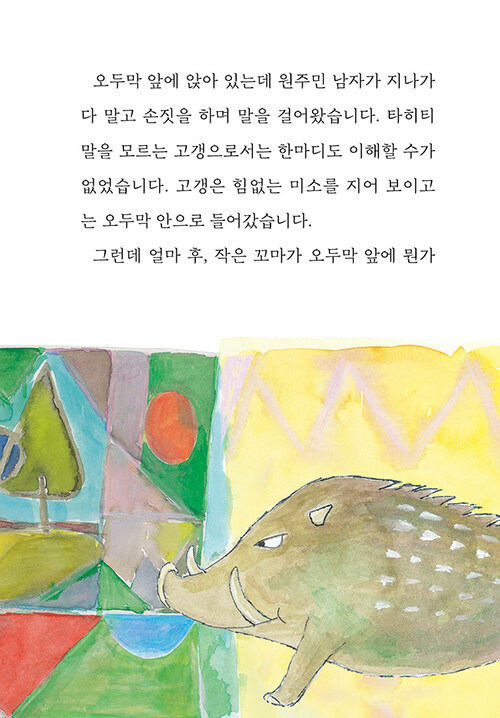 오두막 앞에 앉아 있는데 원주민 남자가 지나가
다 말고 손짓을 하며 말을 걸어왔습니다. 타히티
말을 모르는 고갱으로서는 한마디도 이해할 수가
없었습니다. 고갱은 힘없는 미소를 지어 보이고
는 오두막 안으로 들어갔습니다.
그런데 얼마 후, 작은 꼬마가 오두막 앞에 뭔가